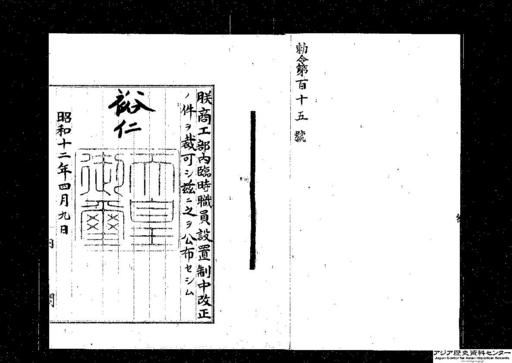 勅令第百十五號
朕商工部内臨時職員設置制中改正
ノ件ヲ裁可シ茲ニ之ヲ公布セシム
裕仁
天皇御璽
昭和十二年四月九日
内閣
アジア歴史資料センター
Japan Center for Asian Historical Records